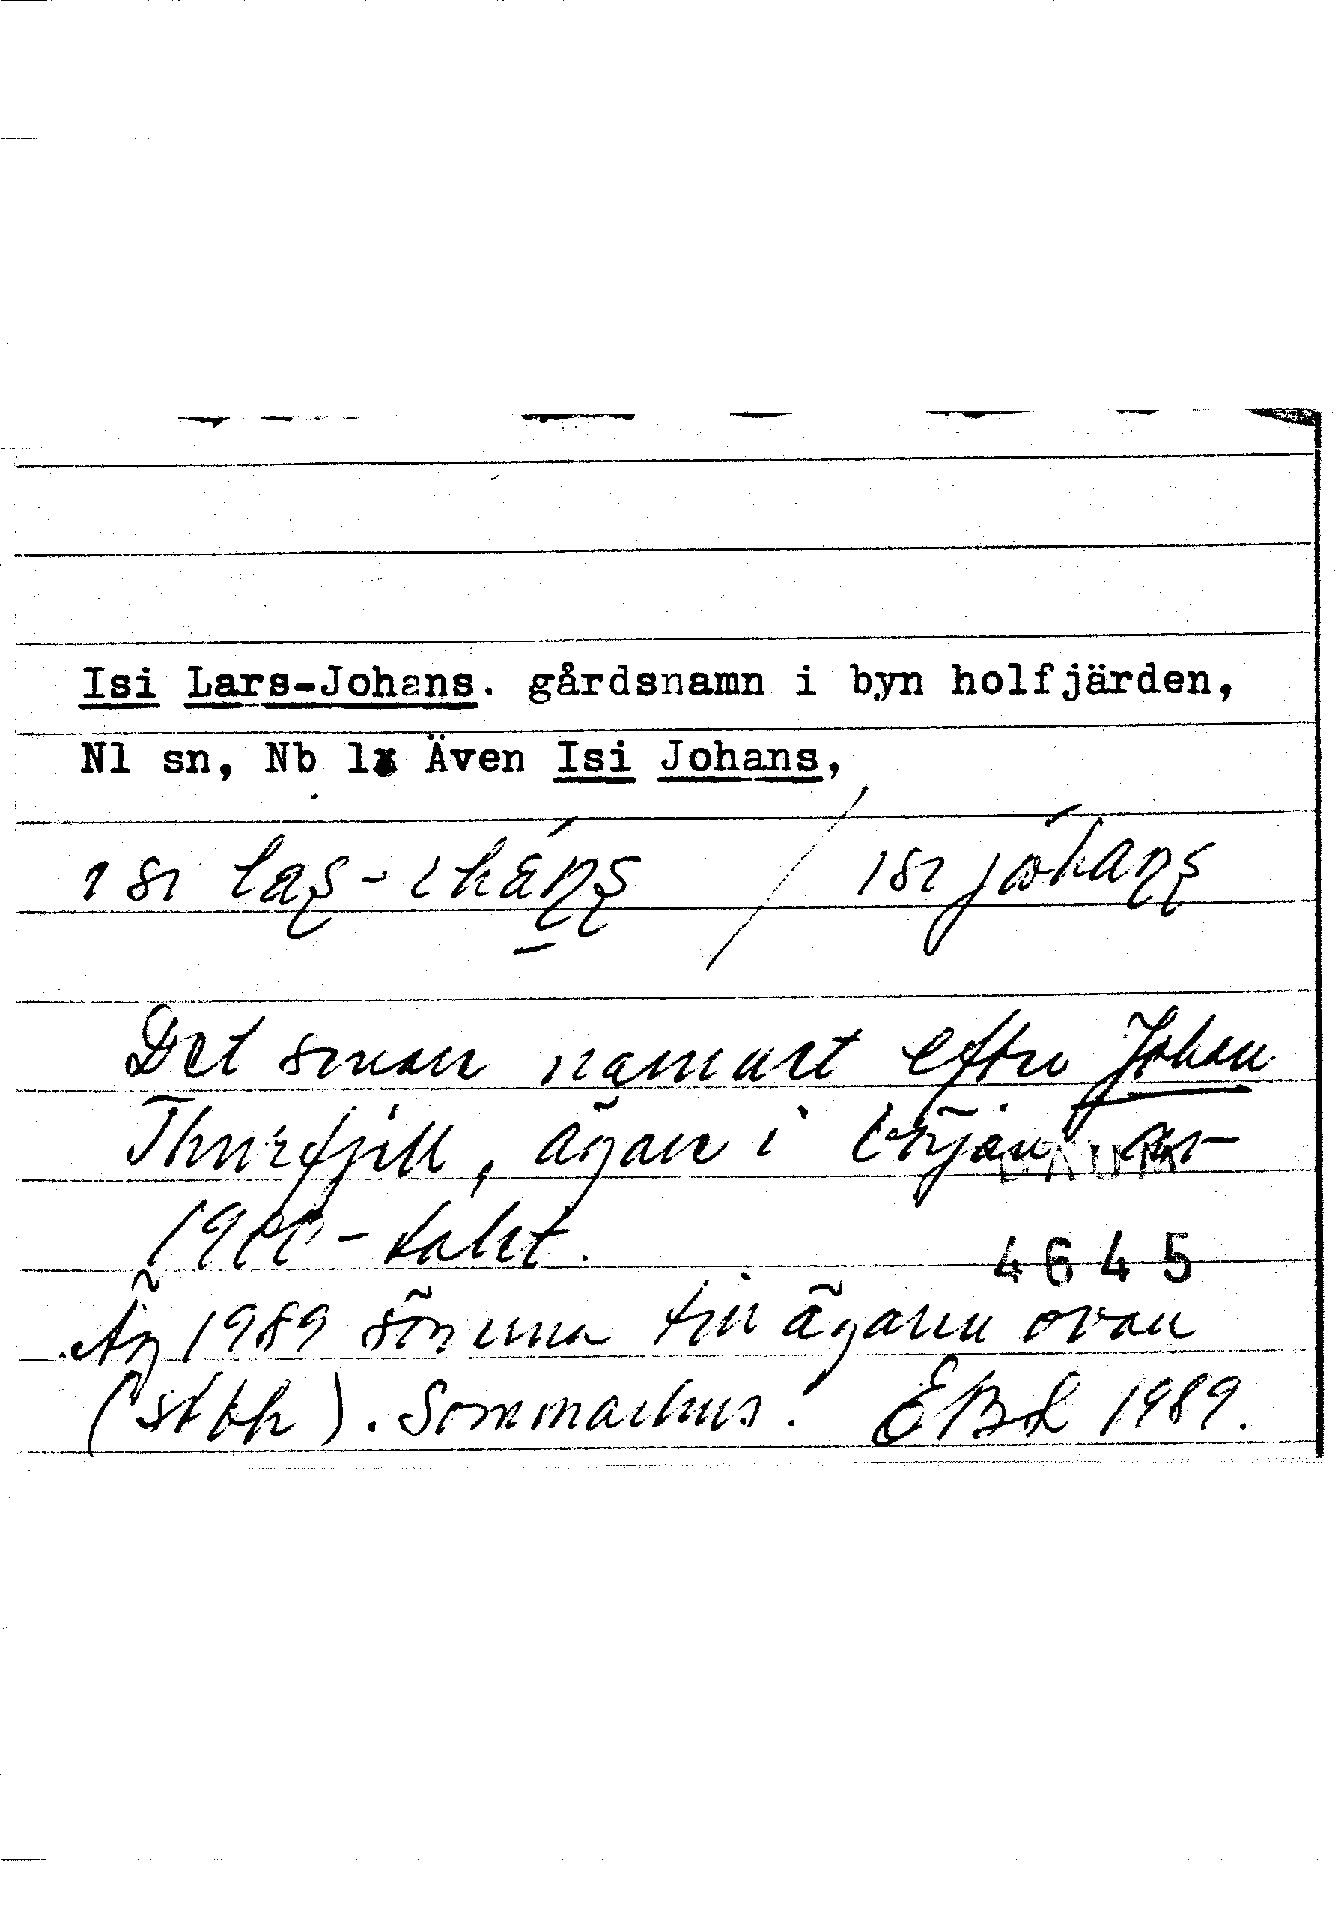 Isi Lars-Johans. gårdsnamn i byn holfjärden,
Nl sn, Nb l Även Isi Johans,
ısı laʂ-ıháɳʂ / ısı jóhaɳʂ
Det senare namnet efter Johan
Thurfjell, ägare i början av
1900-talet.
4645
Äg 1989 sönerna till ägaren ovan
(stbh). Sommarhus. EBL 1989.